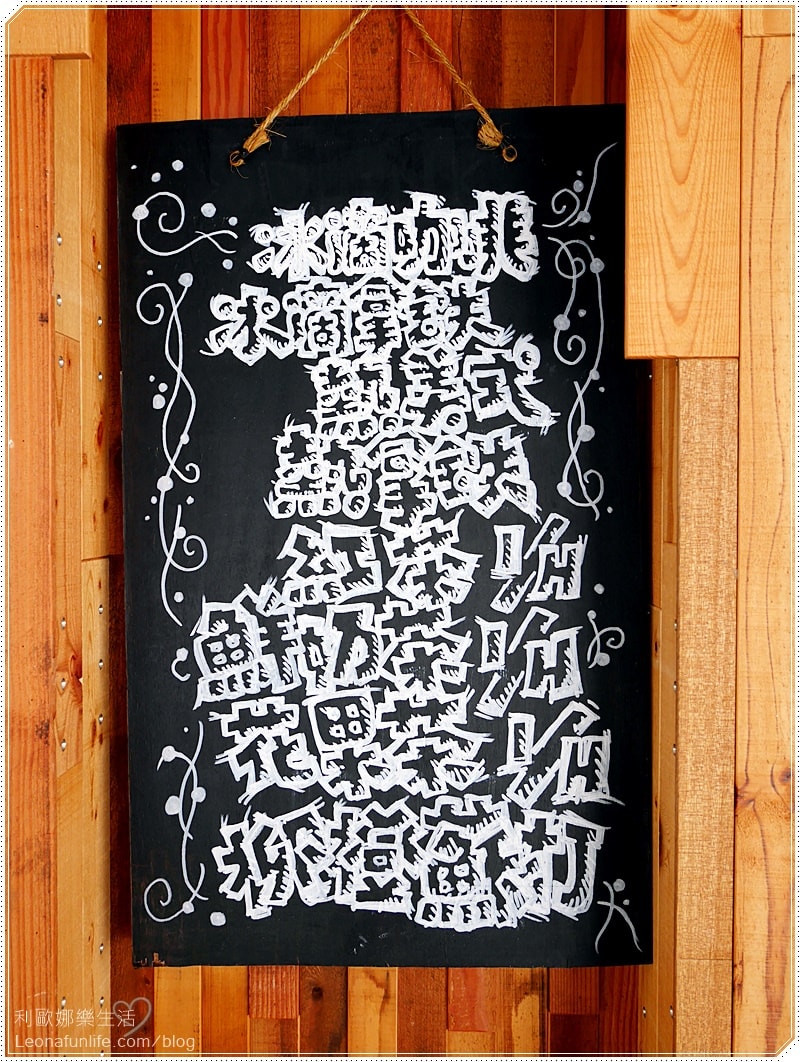 冰滴咖啡
冰滴拿鐵
熱美式
熱拿鐵
紅茶 I/H
鮮奶茶 I/H
花果茶 I/H
打
利歐娜樂生活
Leonafunlife.com/blog